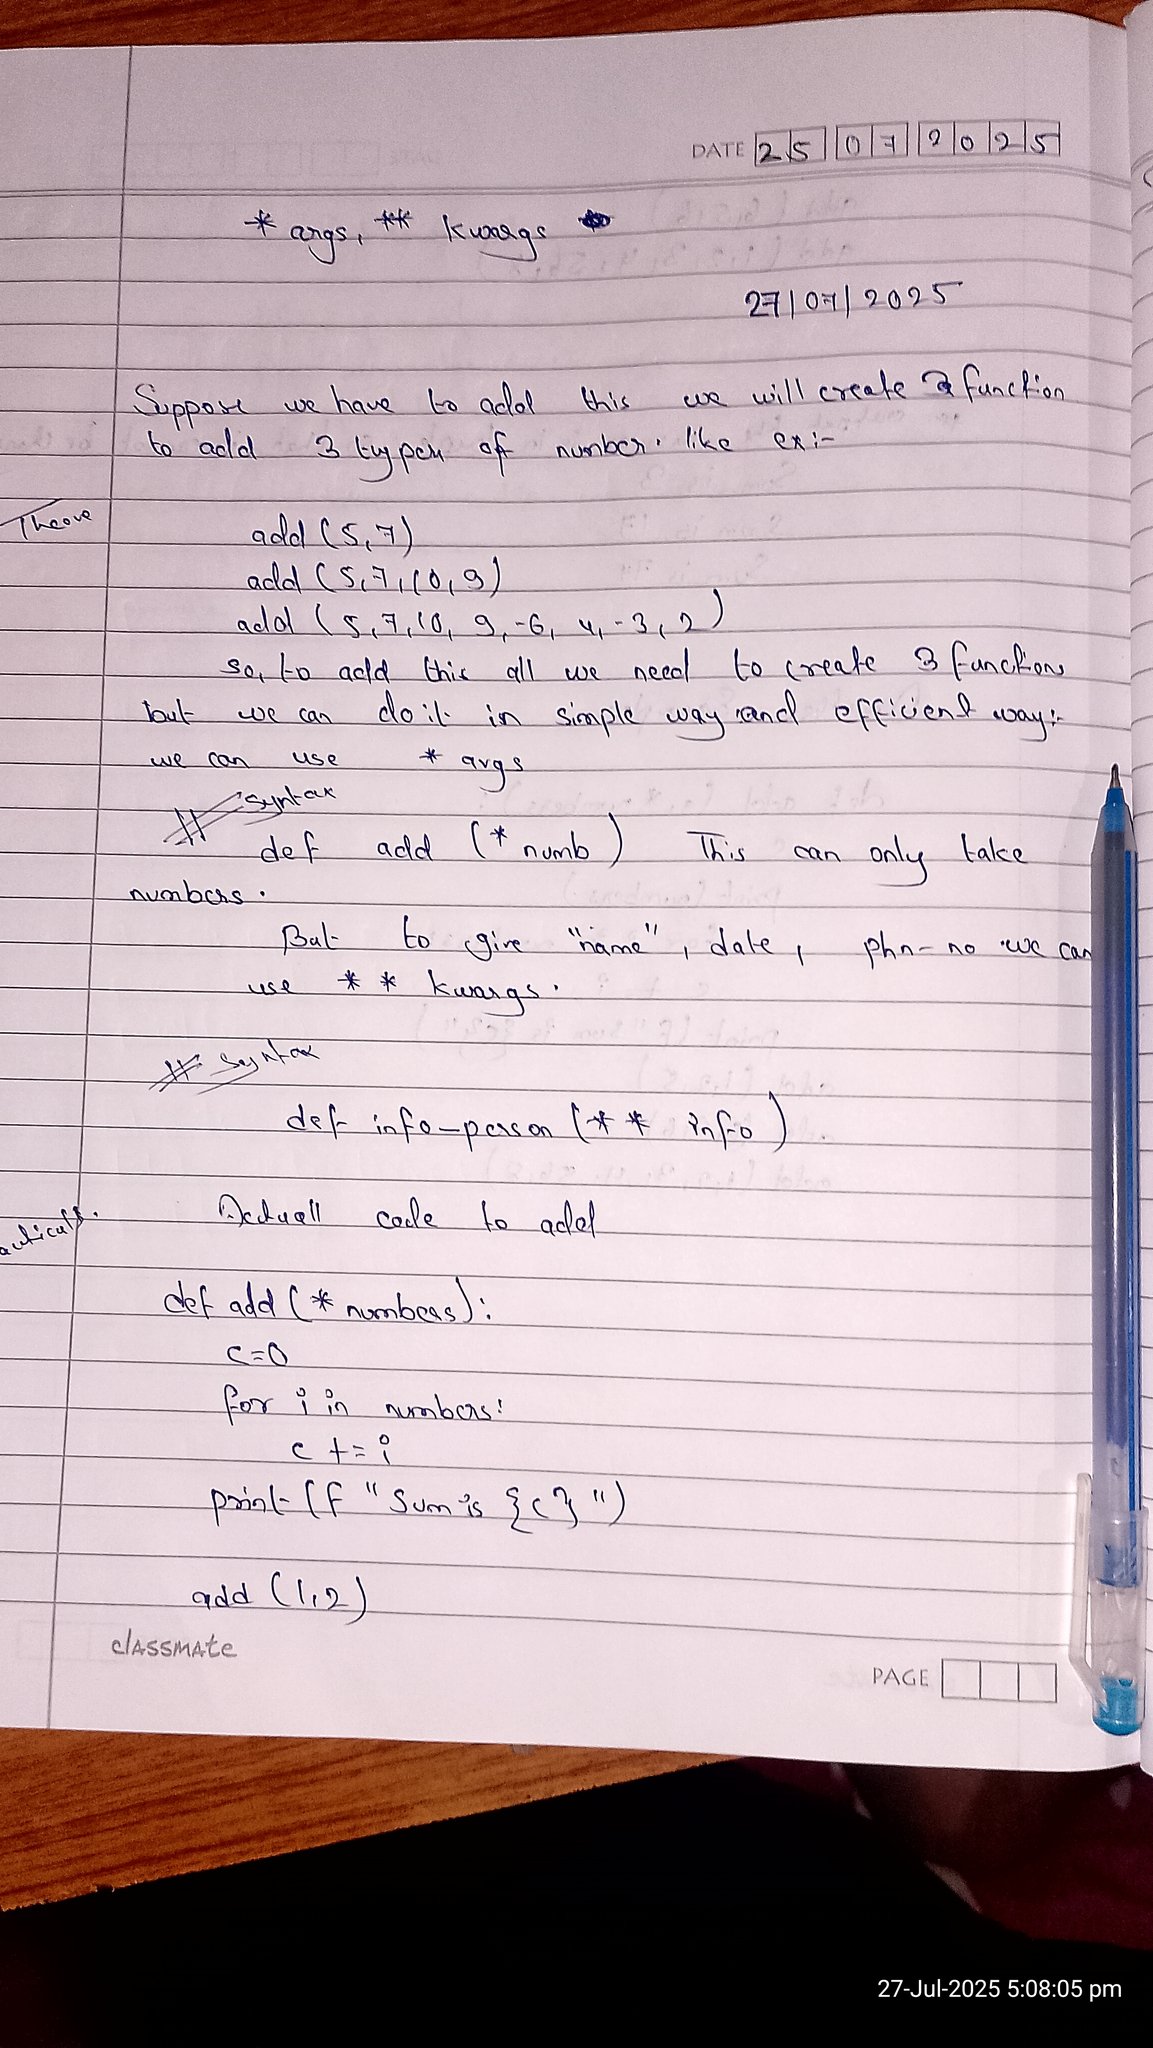 DATE 25 07 2025
* args, ** kwargs
27/07/2025
Suppose we have to add this we will create 3 function
to add 3 types of number. like ex:-
Theore
add (5,7)
add (5,7,10,9)
add (5,7,10, 9,-6, 4,-3,2)
so, to add this all we need to create 3 functions
but we can do it in simple way and efficient way:-
we can use * args
# syntax
def add (* numb) This can only take
numbers.
But to give "name", date, phn-no we can
use ** kwargs.
# syntax
def info-person (** info)
actically.
Actuall code to add
def add (* numbers):
c=0
for i in numbers:
c += i
print (f "Sum is {c}")
add (1,2)
classmate
PAGE
27-Jul-2025 5:08:05 pm